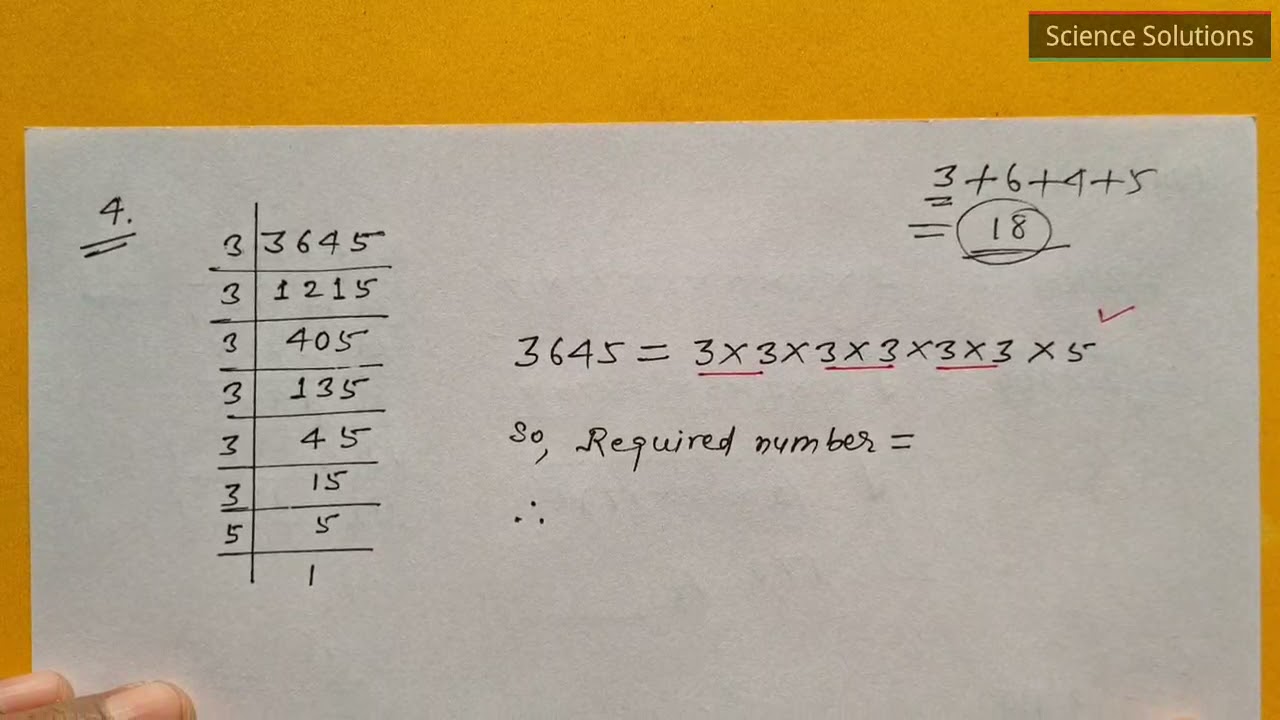 Science Solutions
3+6+4+5
= 18
4.
3 | 3645
3 | 1215
3 | 405
3 | 135
3 | 45
3 | 15
5 | 5
1
3645 = 3×3×3×3×3×3×5 ✓
So, Required number =
∴